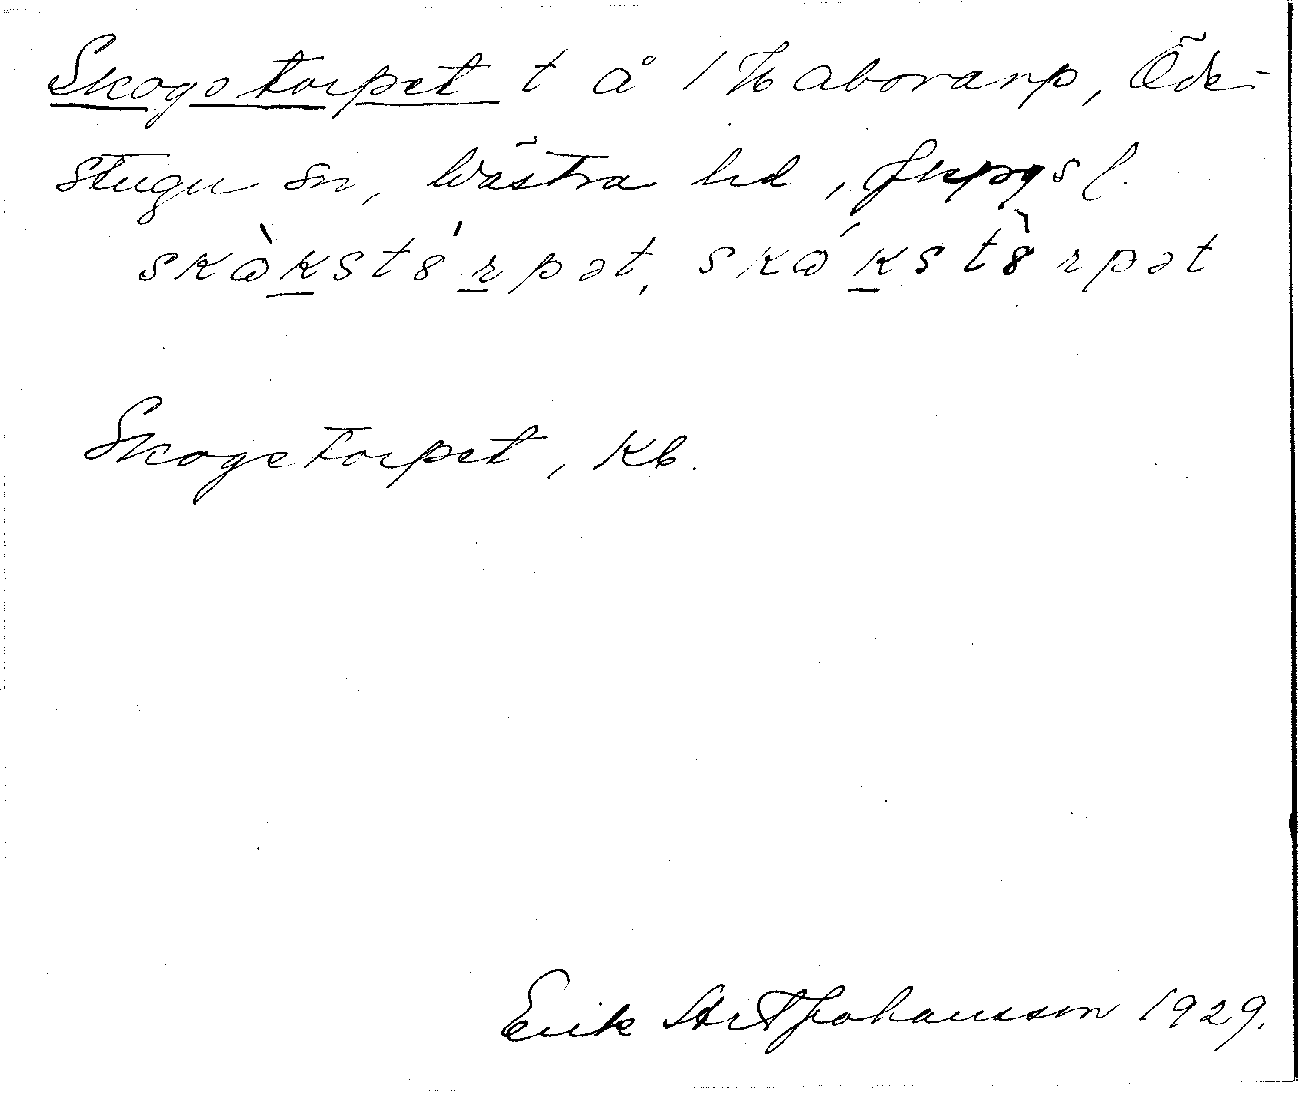 Skogstorpet t å 1 Haboranp, Öde-
stugu sn, Västra hd, Jkpgs l.
skò̀kstó8rpət, skókst8̀rpət
Skogstorpet, Kb.
Erik Art Johansson 1929.